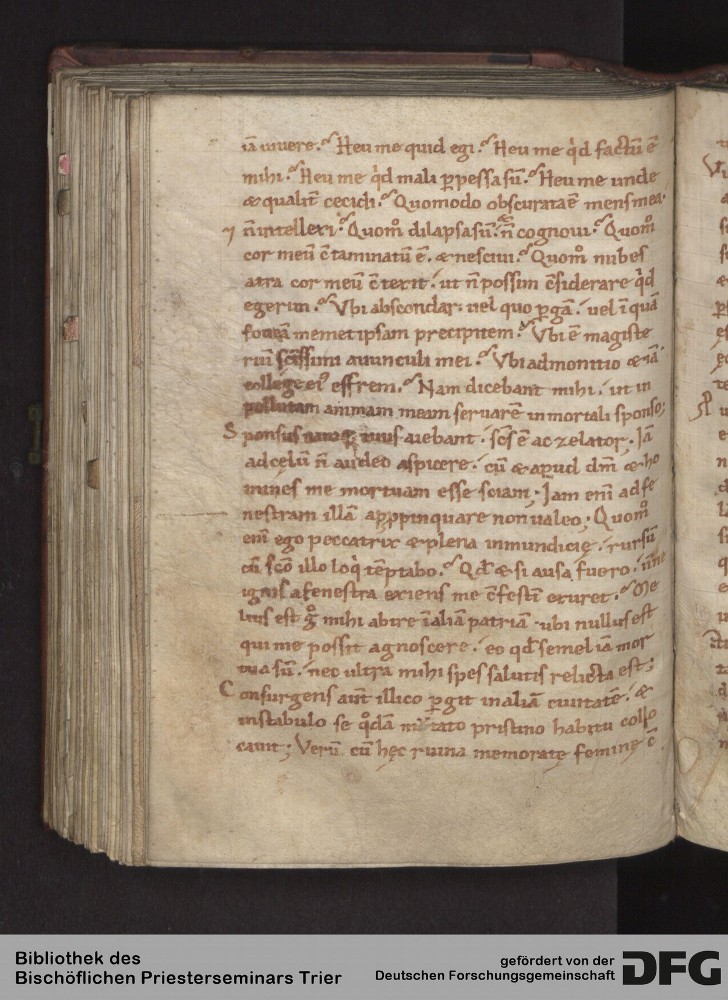 iā uiuere. Heu me quid egi. Heu me qͥd factū ē
mihi. Heu me qͥd mali ꝑpessa sū. Heu me unde
& qualit̄ cecidi. Quomodo obscurata ē mens mea.
⁊ n̄ intellexi. Quom̊ dilapsa sū. & n̄ cognoui. Quom̊
cor meū c̄taminatū ē. & nesciui. Quom̊ nubes
atra cor meū c̄texit. ut n̄ possim c̄siderare qͥd
egerim. Vbi abscondar. uel quo ꝑgā. uel ī quā
foueā memetipsam precipitem. Vbi ē magiste
riū sc̄issimi auunculi mei. Vbi admonitio & iā
collegę eiꝰ effrem. Nam dicebant mihi. ut in
pollutam animam meam seruarē inmortali sponso;
Sponsus tuus aiebant. sc̄s ē ac zelator. Iā
ad celū n̄ audeo aspicere. cū & apud dm̄ & ho
mines me mortuam esse sciam. Iam enī ad fe
nestram illā appropinquare non ualeo; Quom̊
enī ego peccatrix & plena inmundicię. rursū
cū sc̄o illo loqͥ tēptabo. Qd̄ & si ausa fuero. nn̄e
ignis a fenestra exiens me c̄festī exuret. Me
lius est gͦ mihi abire ī aliā patriā. ubi nullus est
qui me possit agnoscere. eo qd̄ semel iā mor
tua sū. nec ultra mihi spes salutis relicta est;
Consurgens aut̄ illico ꝑgit in aliā ciuitatē. &
in stabulo se qͦdā mutato pristino habitu collo
cauit; Verū cū hęc ruina memoratę feminę c̄
Bibliothek des
Bischöflichen Priesterseminars Trier
gefördert von der
Deutschen Forschungsgemeinschaft
DFG